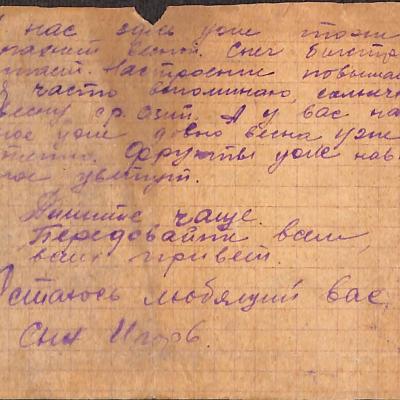 нас здесь уже тоже
весной. Снег быстро
тает. Настроение повышае
Я часто вспоминаю, солнеч
весну ср. Азии. А у вас на
ное уже давно весна уже
тепло. Фрукты уже нав
ное цветут.
Пишите чаще.
Передовайте всем,
вам привет.
Остаюсь любящий вас
Сын Игорь.